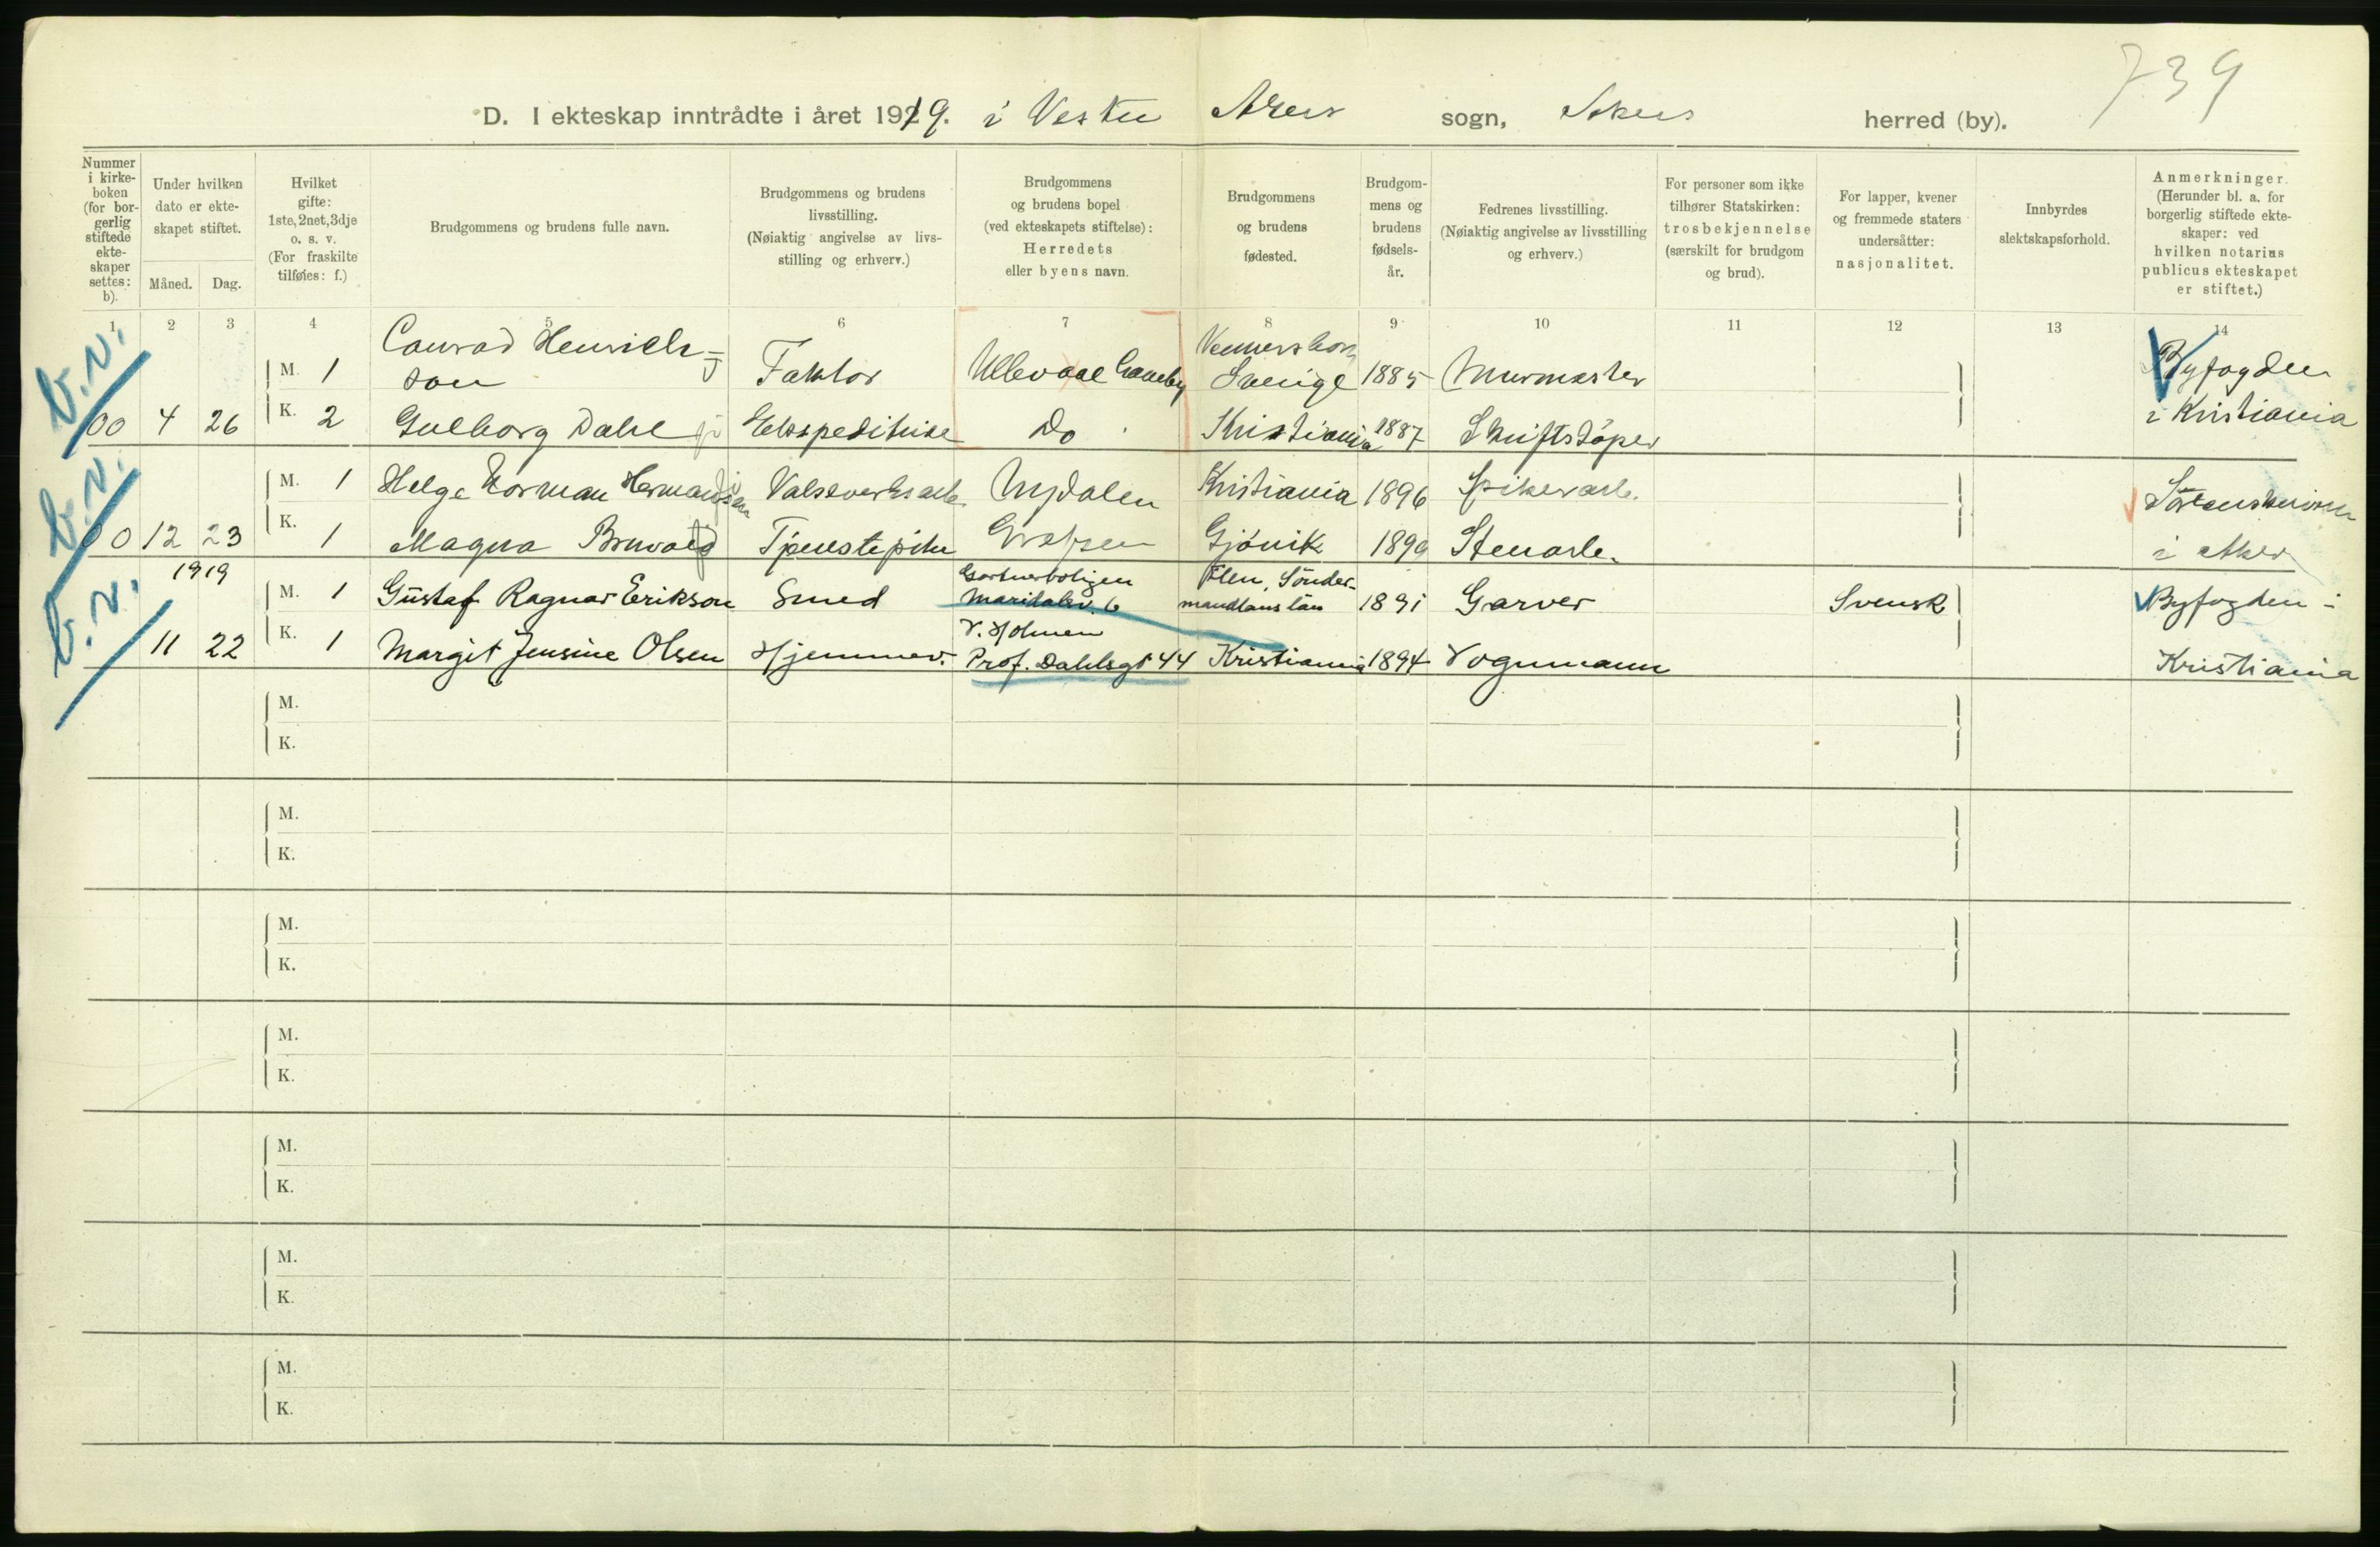 739
D. I ekteskap inntrådte i året 1919. i Vestre Akers sogn, Akers herred (by).
Nummer i kirke-boken (for bor-gerlig stiftede ekte-skaper settes: b).
Under hvilken dato er ekte-skapet stiftet.
Måned. Dag.
Hvilket gifte: 1ste, 2net, 3dje o. s. v. (For fraskilte tilføies: f.)
Brudgommens og brudens fulle navn.
Brudgommens og brudens livsstilling. (Nøiaktig angivelse av livs-stilling og erhverv.)
Brudgommens og brudens bopel (ved ekteskapets stiftelse): Herredets eller byens navn.
Brudgommens og brudens fødested.
Brudgom-mens og brudens fødsels-år.
Fedrenes livsstilling. (Nøiaktig angivelse av livsstilling og erhverv.)
For personer som ikke tilhører Statskirken: trosbekjennelse (særskilt for brudgom og brud).
For lapper, kvener og fremmede staters undersåtter: nasjonalitet.
Innbyrdes slektskapsforhold.
Anmerkninger. (Herunder bl. a. for borgerlig stiftede ekte-skaper: ved hvilken notarius publicus ekteskapet er stiftet.)
1 2 3 4 5 6 7 8 9 10 11 12 13 14
b.v.
Conrad Henrick- Vennersborg
M. 1 son Faktor Ullevaal Haveby Sverige 1885 Murmester Byfogden
00 4 26 K. 2 Gulborg Dahl Ekspeditrise Do Kristiania 1887 Skriftstöper i Kristiania
b.v.
M. 1 Helge Norman Hermansen Valseverksarb. Nydalen Kristiania 1896 Spikerarb. Sorenskriveren
00 12 23 K. 1 Magna Bruvold Tjenestepike Grefsen Gjövik 1899 Stenarb. i Aker
b.v.
1919 Gartnerboligen Flen, Sönder-
M. 1 Gustaf Ragnar Erikson Smed Maridalsv. 6 manlans län 1891 Garver Svensk Byfogden i
V. Holmen
11 22 K. 1 Margit Jensine Olsen Hjemmev. Prof. Dahlsgt 44 Kristiania 1894 Vognmann Kristiania
M.
K.
M.
K.
M.
K.
M.
K.
M.
K.
M.
K.
M.
K.